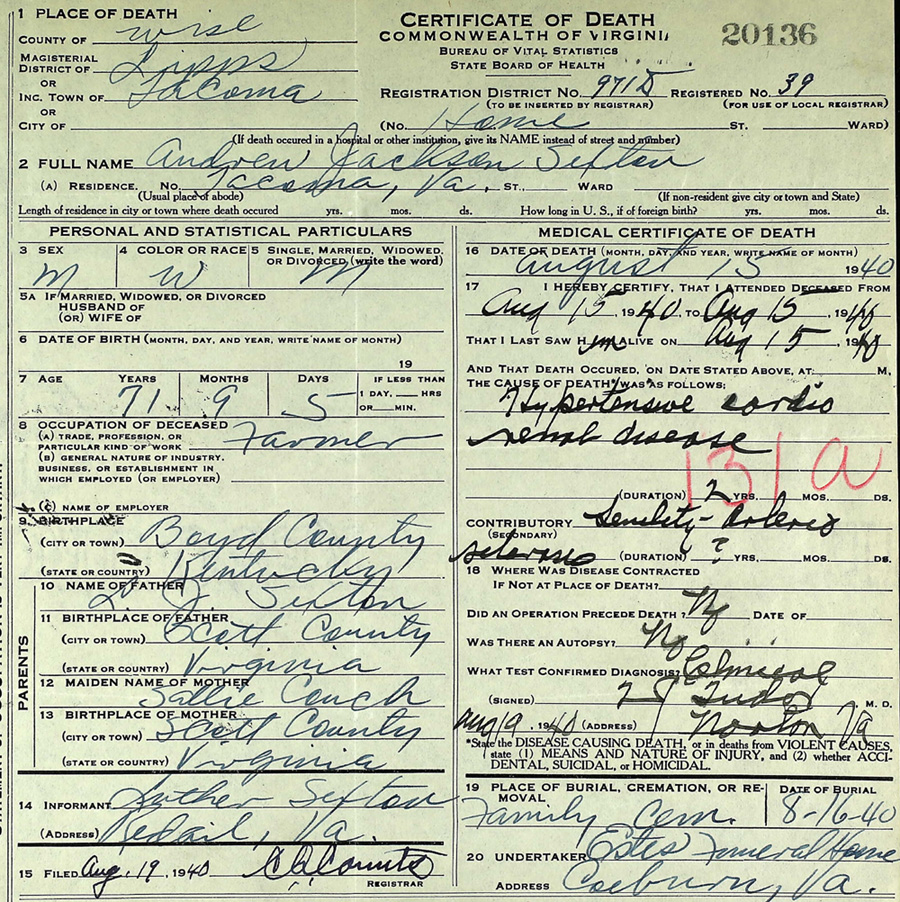 1 PLACE OF DEATH
COUNTY OF Wise
MAGISTERIAL DISTRICT OF Lipps
OR
INC. TOWN OF Tacoma
OR
CITY OF
CERTIFICATE OF DEATH
COMMONWEALTH OF VIRGINIA
BUREAU OF VITAL STATISTICS
STATE BOARD OF HEALTH
20136
REGISTRATION DISTRICT NO. 971D REGISTERED NO. 39
(TO BE INSERTED BY REGISTRAR) (FOR USE OF LOCAL REGISTRAR)
(No. Home ST. WARD)
(If death occured in a hospital or other institution, give its NAME instead of street and number)
2 FULL NAME Andrew Jackson Sexton
(A) RESIDENCE. No. Tacoma, Va. ST., WARD
(Usual place of abode) (If non-resident give city or town and State)
Length of residence in city or town where death occured yrs. mos. ds. How long in U. S., if of foreign birth? yrs. mos. ds.
PERSONAL AND STATISTICAL PARTICULARS
3 SEX M
4 COLOR OR RACE W
5 SINGLE, MARRIED, WIDOWED, OR DIVORCED (write the word) M
5A IF MARRIED, WIDOWED, OR DIVORCED
HUSBAND OF
(OR) WIFE OF
6 DATE OF BIRTH (MONTH, DAY, AND YEAR, WRITE NAME OF MONTH)
19
7 AGE YEARS MONTHS DAYS IF LESS THAN
71 9 5 1 DAY, HRS
OR MIN.
8 OCCUPATION OF DECEASED
(A) TRADE, PROFESSION, OR
PARTICULAR KIND OF WORK Farmer
(B) GENERAL NATURE OF INDUSTRY,
BUSINESS, OR ESTABLISHMENT IN
WHICH EMPLOYED (OR EMPLOYER)
(C) NAME OF EMPLOYER
9. BIRTHPLACE
(CITY OR TOWN) Boyd County
(STATE OR COUNTRY) Kentucky
PARENTS
10 NAME OF FATHER Sexton
11 BIRTHPLACE OF FATHER
(CITY OR TOWN) Scott County
(STATE OR COUNTRY) Virginia
12 MAIDEN NAME OF MOTHER
Sallie Couch
13 BIRTHPLACE OF MOTHER
(CITY OR TOWN) Scott County
(STATE OR COUNTRY) Virginia
14 INFORMANT Luther Sexton
(ADDRESS) Va.
15 FILED Aug. 19 1940 Counts
REGISTRAR
MEDICAL CERTIFICATE OF DEATH
16 DATE OF DEATH (MONTH, DAY, AND YEAR, WRITE NAME OF MONTH)
August 15 1940
17 I HEREBY CERTIFY, THAT I ATTENDED DECEASED FROM
Aug 15, 1940, TO Aug 15, 1940
THAT I LAST SAW HIM ALIVE ON Aug 15 1940
AND THAT DEATH OCCURED, ON DATE STATED ABOVE, AT M,
THE CAUSE OF DEATH* WAS AS FOLLOWS:
Hypertensive cardio
renal disease
131a
(DURATION) 2 YRS. MOS. DS.
CONTRIBUTORY Senility - Arterio
(SECONDARY)
sclerosis (DURATION) ? YRS. MOS. DS.
18 WHERE WAS DISEASE CONTRACTED
IF NOT AT PLACE OF DEATH?
DID AN OPERATION PRECEDE DEATH? No DATE OF
WAS THERE AN AUTOPSY? No
WHAT TEST CONFIRMED DIAGNOSIS? Clinical
(SIGNED) Tudor M. D.
Aug 19, 1940 (ADDRESS) Norton Va
*State the DISEASE CAUSING DEATH, or in deaths from VIOLENT CAUSES,
state (1) MEANS AND NATURE OF INJURY, and (2) whether ACCI-
DENTAL, SUICIDAL, or HOMICIDAL.
19 PLACE OF BURIAL, CREMATION, OR RE-
MOVAL
Family Cem.
DATE OF BURIAL
8-16-40
20 UNDERTAKER Estes Funeral Home
ADDRESS Coeburn, Va.